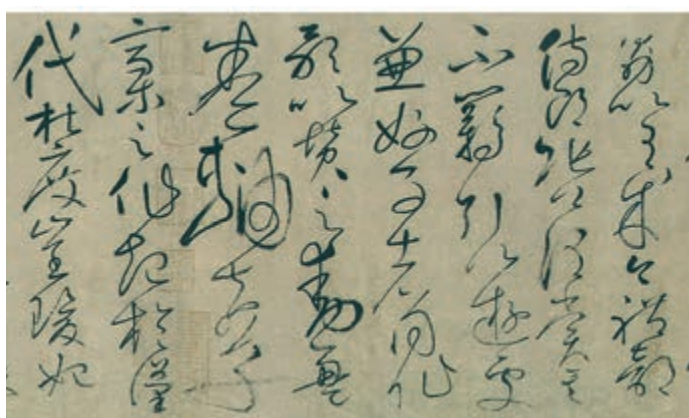 勗以有成今禮部
侍郎張公謂賞其
不羈引以遊處
兼好事者同作
歌以贊之動盈
卷軸夫草
稾之作起於漢
代杜度崔瑗始